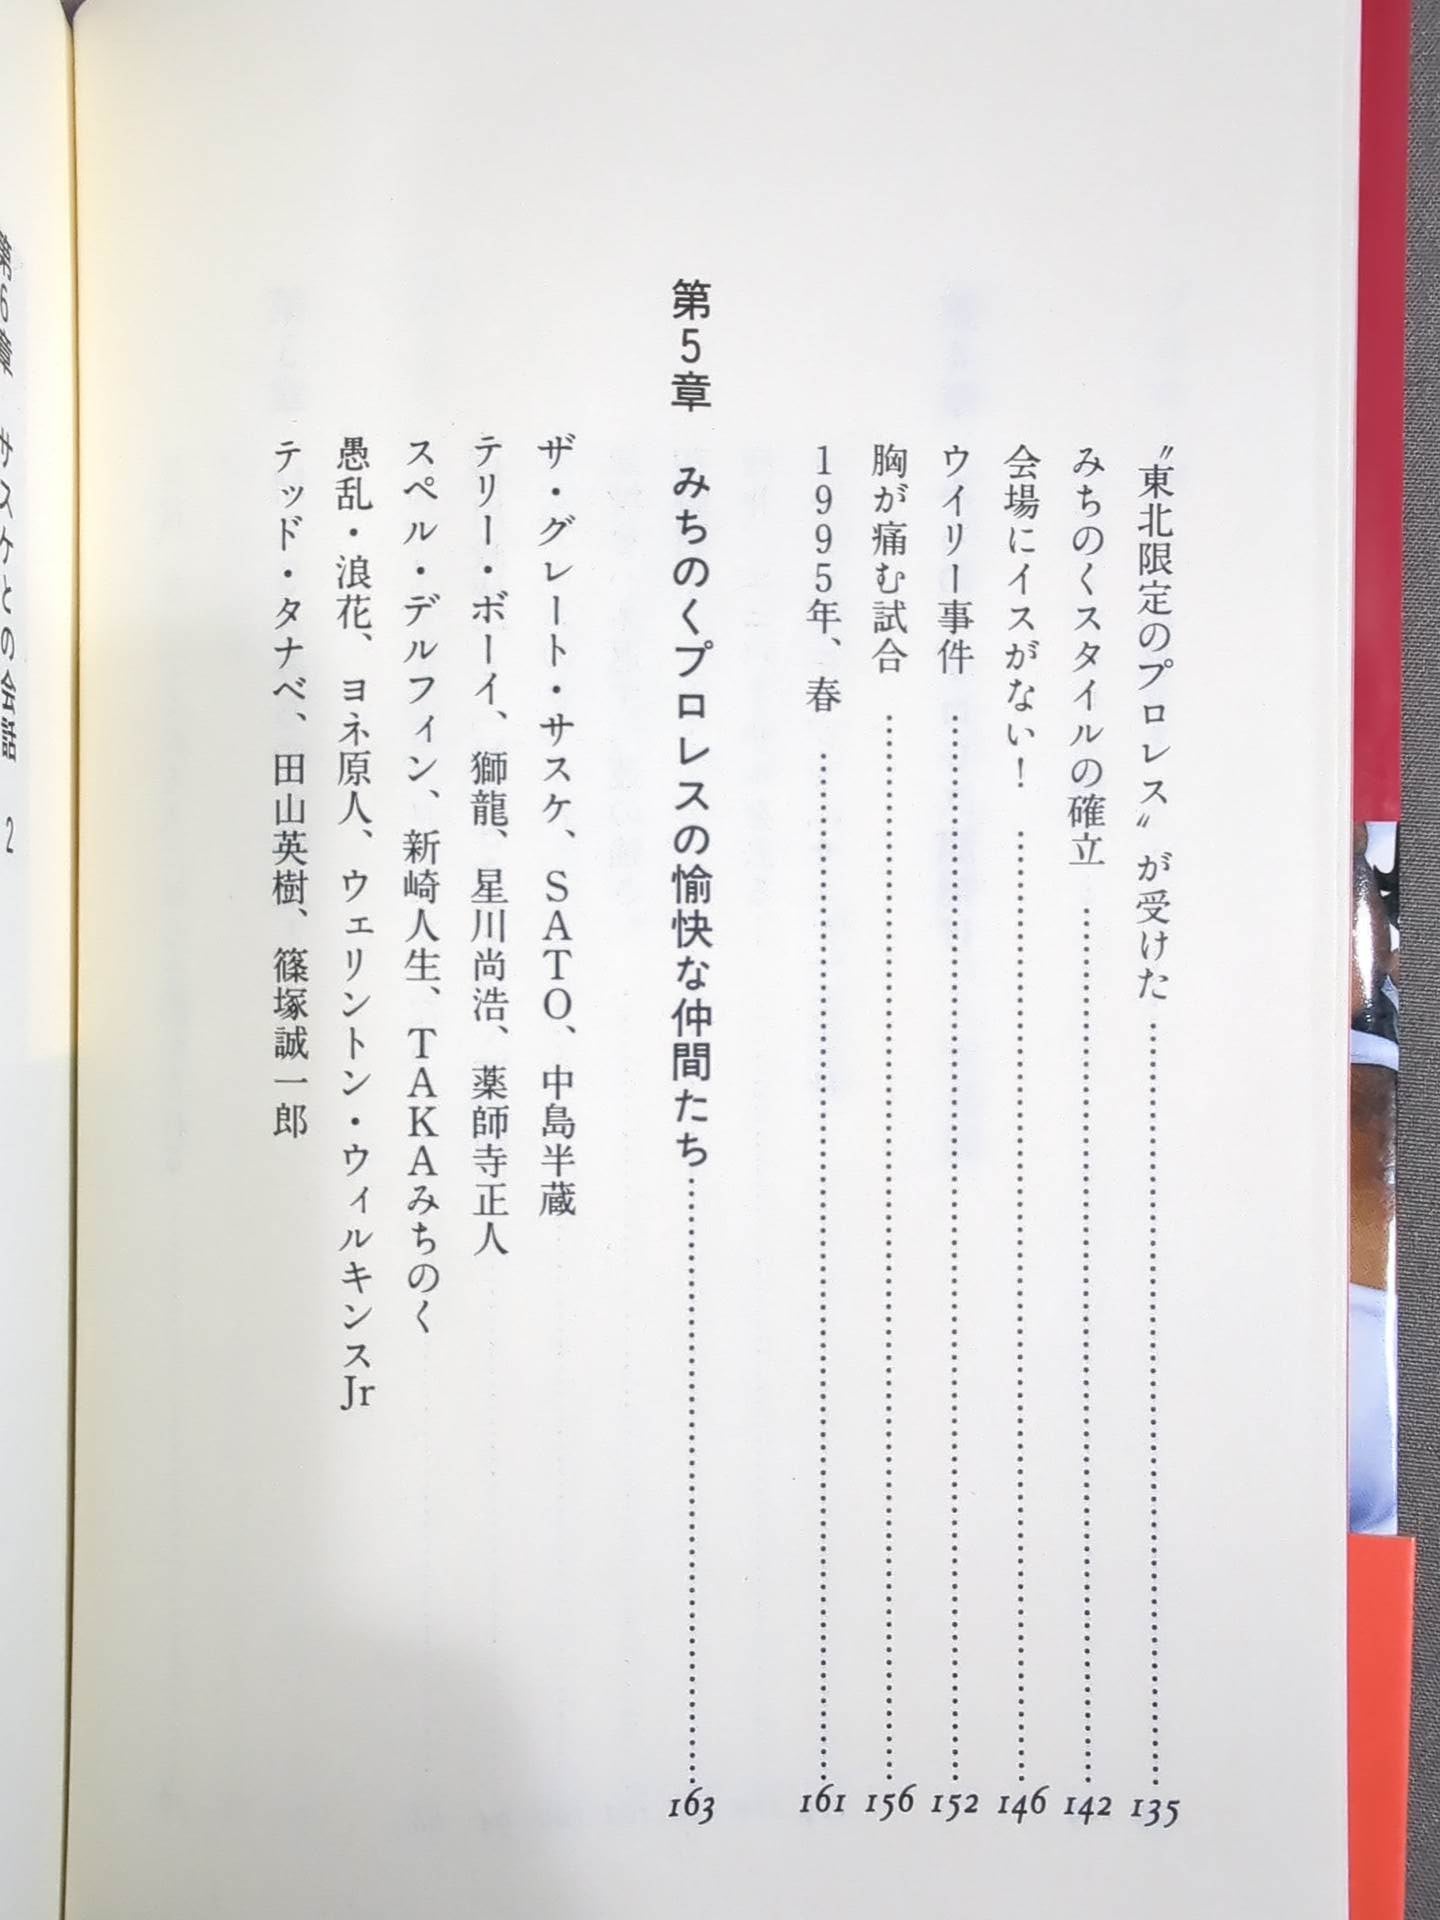 〝東北限定のプロレス〟が受けた……135
みちのくスタイルの確立……142
会場にイスがない！……146
ウイリー事件……152
胸が痛む試合……156
1995年、春……161
第5章 みちのくプロレスの愉快な仲間たち……163
ザ・グレート・サスケ、SATO、中島半蔵
テリー・ボーイ、獅龍、星川尚浩、薬師寺正人
スペル・デルフィン、新崎人生、TAKAみちのく
愚乱・浪花、ヨネ原人、ウェリントン・ウィルキンスJr
テッド・タナベ、田山英樹、篠塚誠一郎
第6章 サスケとの会話 2